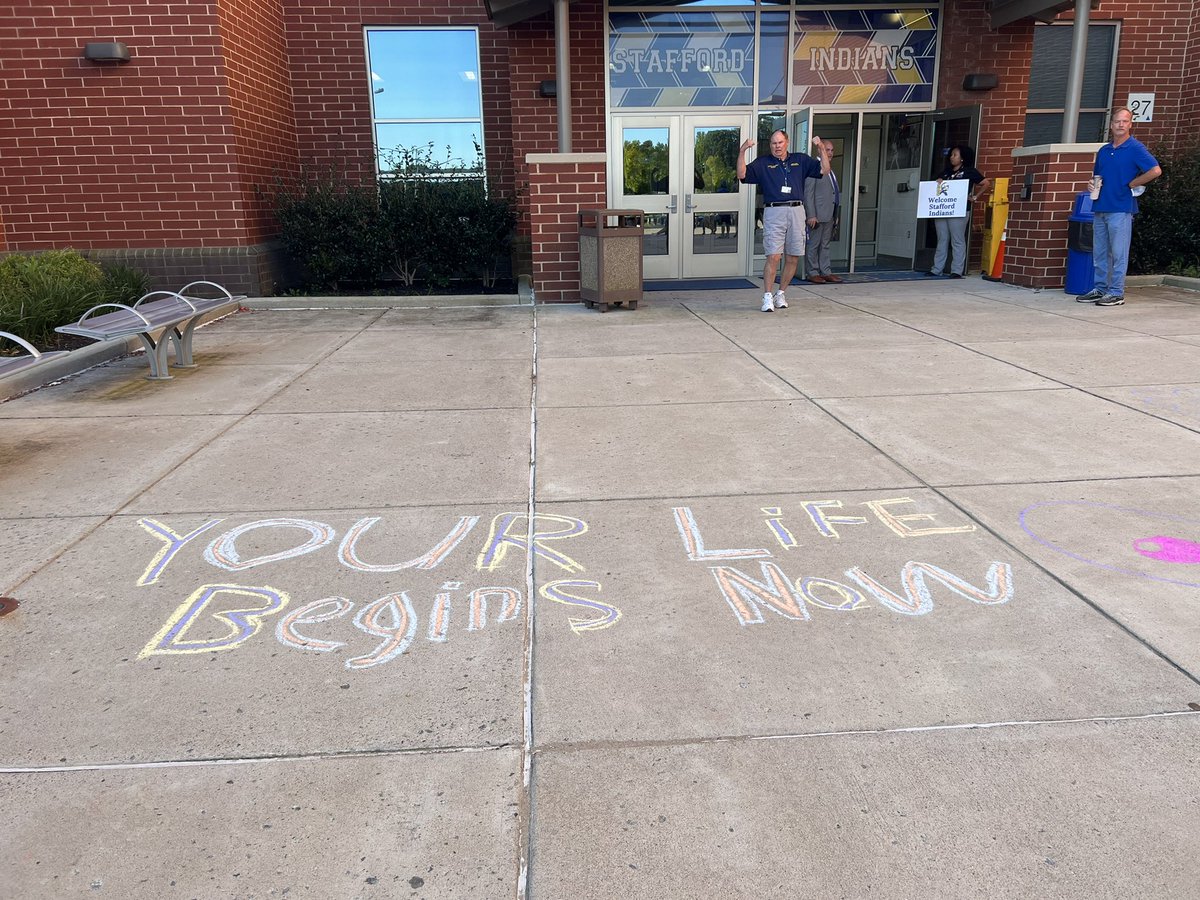 STAFFORD INDIANS
27
Welcome
Stafford
Indians!
YOUR LiFE
Begins Now